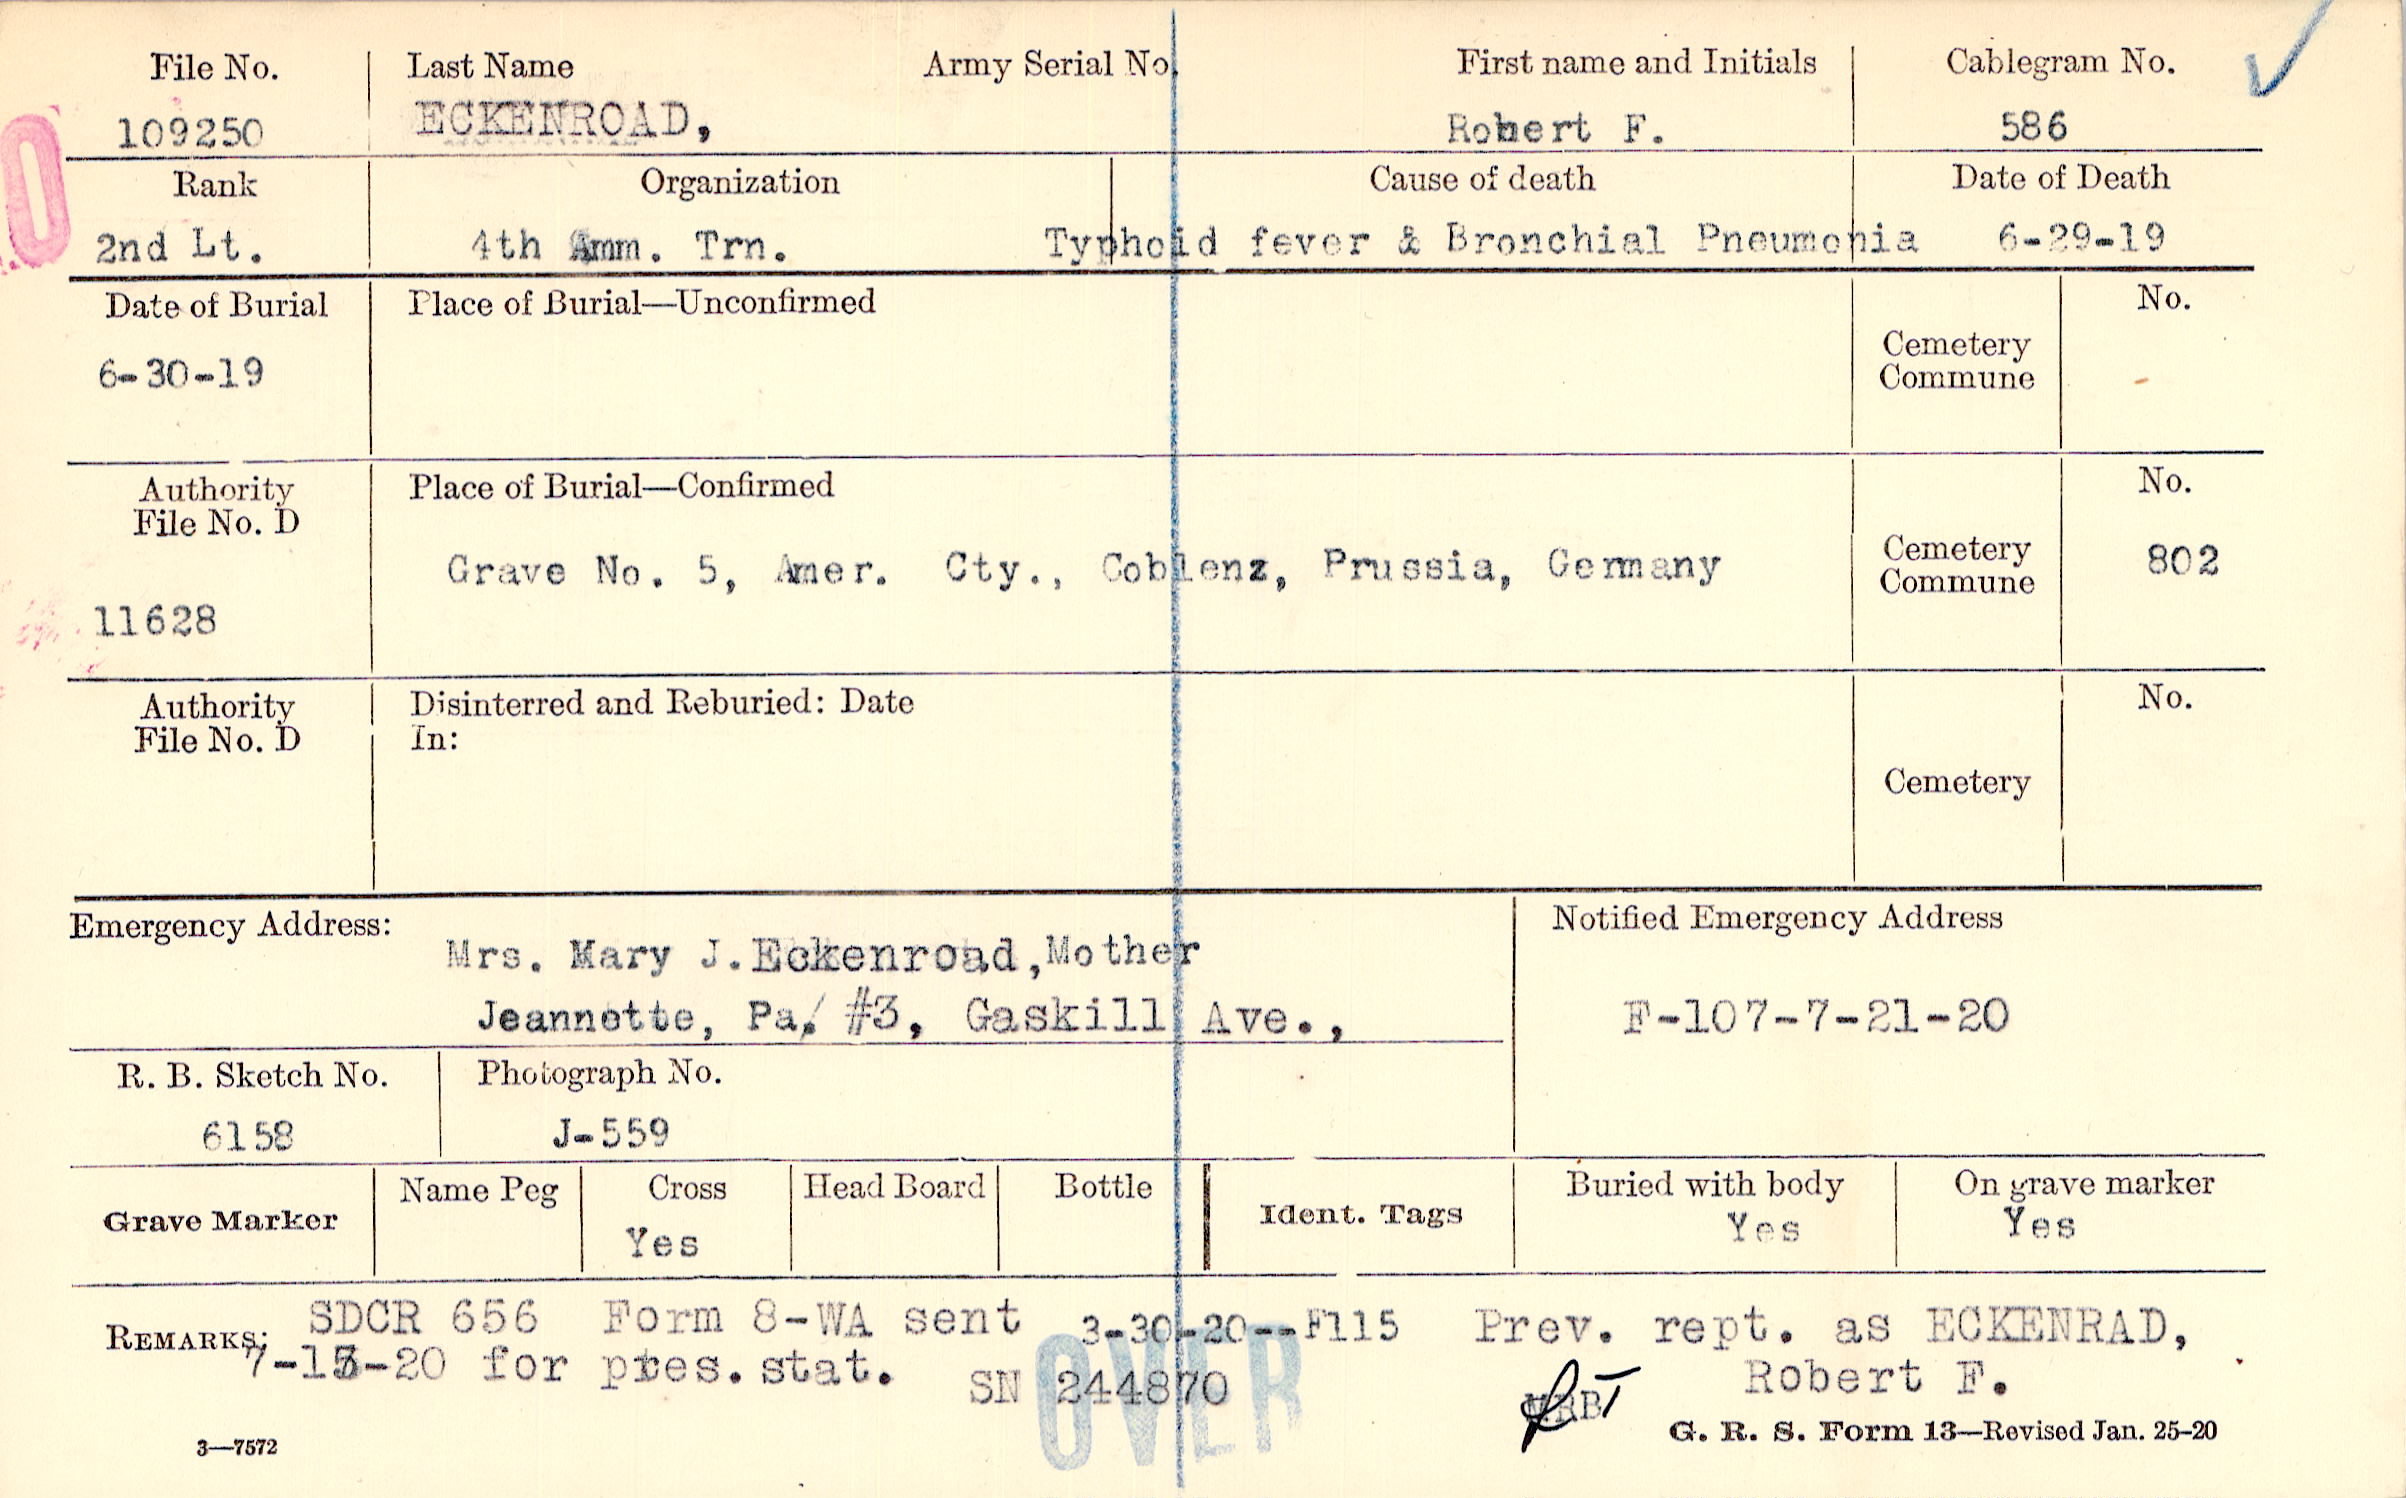 File No. Last Name Army Serial No. First name and Initials Cablegram No.
109250 ECKENROAD, Robert F. 586
Rank Organization Cause of death Date of Death
2nd Lt. 4th Amm. Trn. Typhoid fever & Bronchial Pneumonia 6-29-19
Date of Burial Place of Burial—Unconfirmed No.
6-30-19 Cemetery
Commune
Authority Place of Burial—Confirmed No.
File No. D
Grave No. 5, Amer. Cty., Coblenz, Prussia, Germany Cemetery 802
Commune
11628
Authority Disinterred and Reburied: Date No.
File No. D In:
Cemetery
Emergency Address: Notified Emergency Address
Mrs. Mary J. Eckenroad, Mother
Jeannette, Pa. #3, Gaskill Ave., F-107-7-21-20
R. B. Sketch No. Photograph No.
6158 J-559
Grave Marker Name Peg Cross Head Board Bottle Ident. Tags Buried with body On grave marker
Yes Yes Yes
REMARKS: SDCR 656 Form 8-WA sent 3-30-20--F115 Prev. rept. as ECKENRAD,
for pres. stat. SN 244870 Robert F.
OVER
3—7572 G. R. S. Form 13—Revised Jan. 25-20